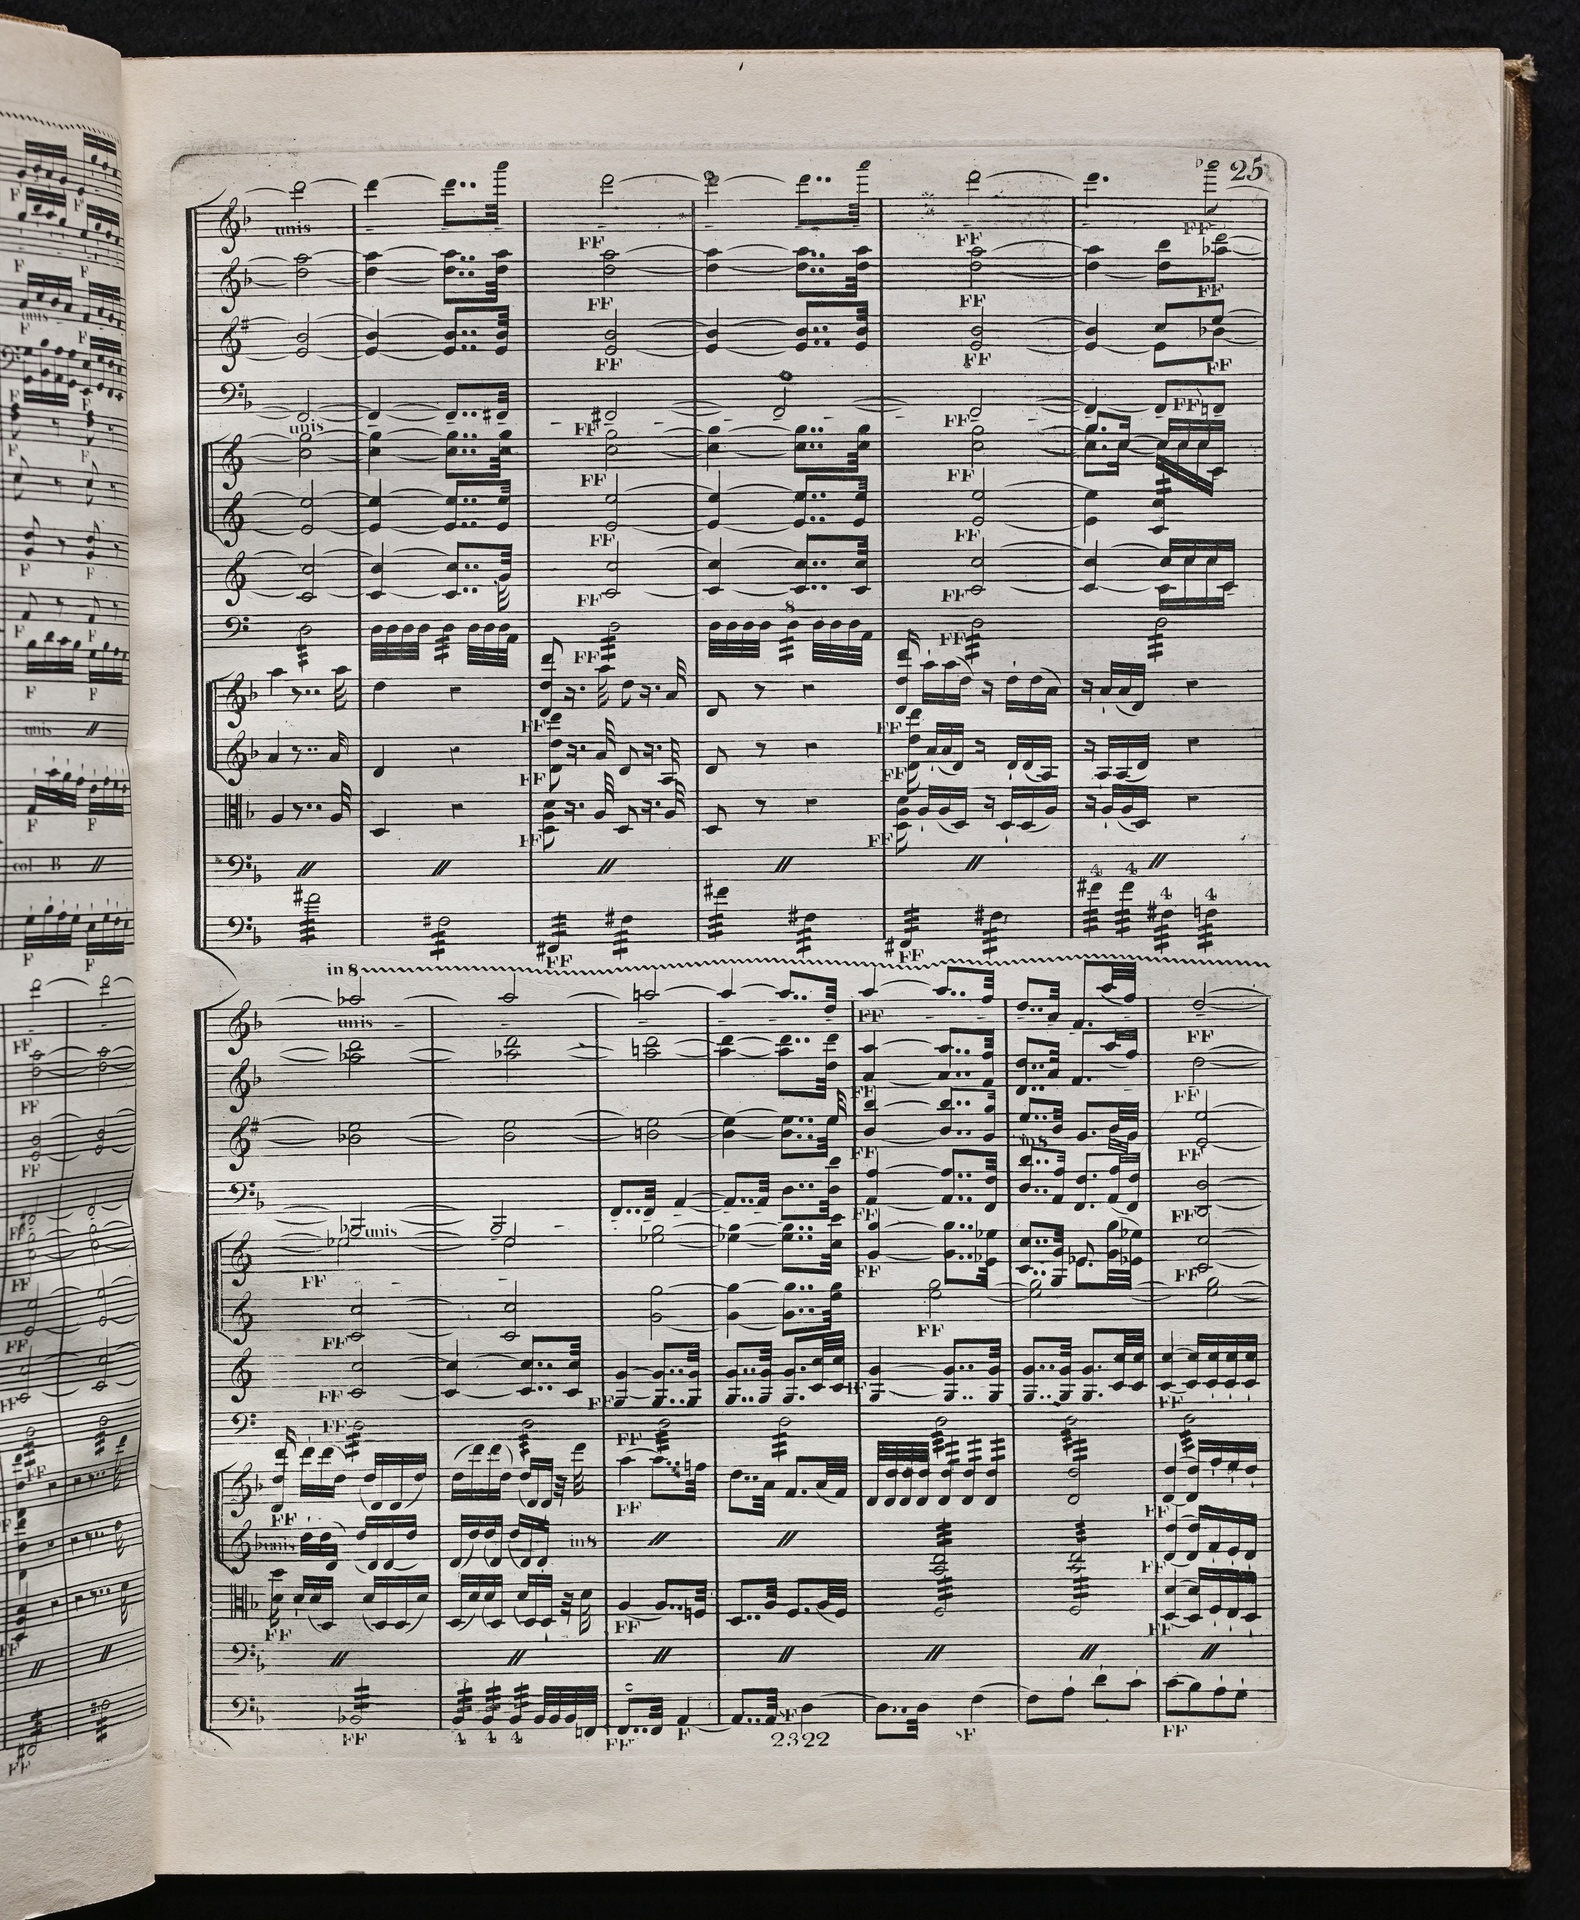 25
unis
FF
FF
FF
FF
FF
FF
FF
FF
FF
unis
FF
FF
FF
FF
FF
FF
FF
FF
FF
FF
FF
8
FF
FF
FF
FF
FF
FF
FF
FF
4 4 4 4
FF
FF
in 8
unis
FF
FF
FF
FF
FF
FF
in 8
FF
FF
unis
FF
FF
FF
FF
FF
FF
FF
FF
FF
FF
FF
FF
FF
FF
unis
in 8
FF
FF
FF
FF
FF
4 4 4
FF
F
SF
SF
FF
2322
F
F
F
F
unis
F
F
F
F
F
F
F
F
F
F
F
F
unis
F
F
col B
F
F
FF
FF
FF
FF
FF
FF
FF
FF
FF
FF
FF